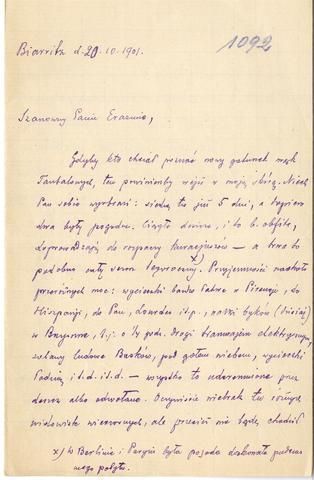 Biarritz d. 20.10.1901.
1092
Szanowny Panie Erazmie,
Gdyby kto chciał poznać nowy gatunek mąk
Tantalowych, ten powinienby wejść w moją skórę. Niech
Pan sobie wyobrazi: siedzę tu już 5 dni, a dopiero
dwa były pogodne. Ciągle deszcze, i to b. obfite,
doprowadzają do rozpaczy kuracjuszów — a teraz to
podobno cały sezon tegoroczny. x) Przyjemności naokoło
przeróżnych moc: wycieczki bardzo łatwe w Pireneje, do
Hiszpanji, do Pau, Lourdes itp., walki byków (dzisiaj)
w Bayonne, t.j. o ½ godz. drogi tramwajem elektrycznym,
zabawy ludowe Basków, pod gołem niebem, wycieczki
łodzią i t.d. i t.d. — wszystko to udaremnione przez
deszcz albo odwołane. Oczywiście niebrak tu różnych
widowisk wieczornych, ale przecież nie będę chodził
x) W Berlinie i Paryżu była pogoda doskonała podczas
mego pobytu.